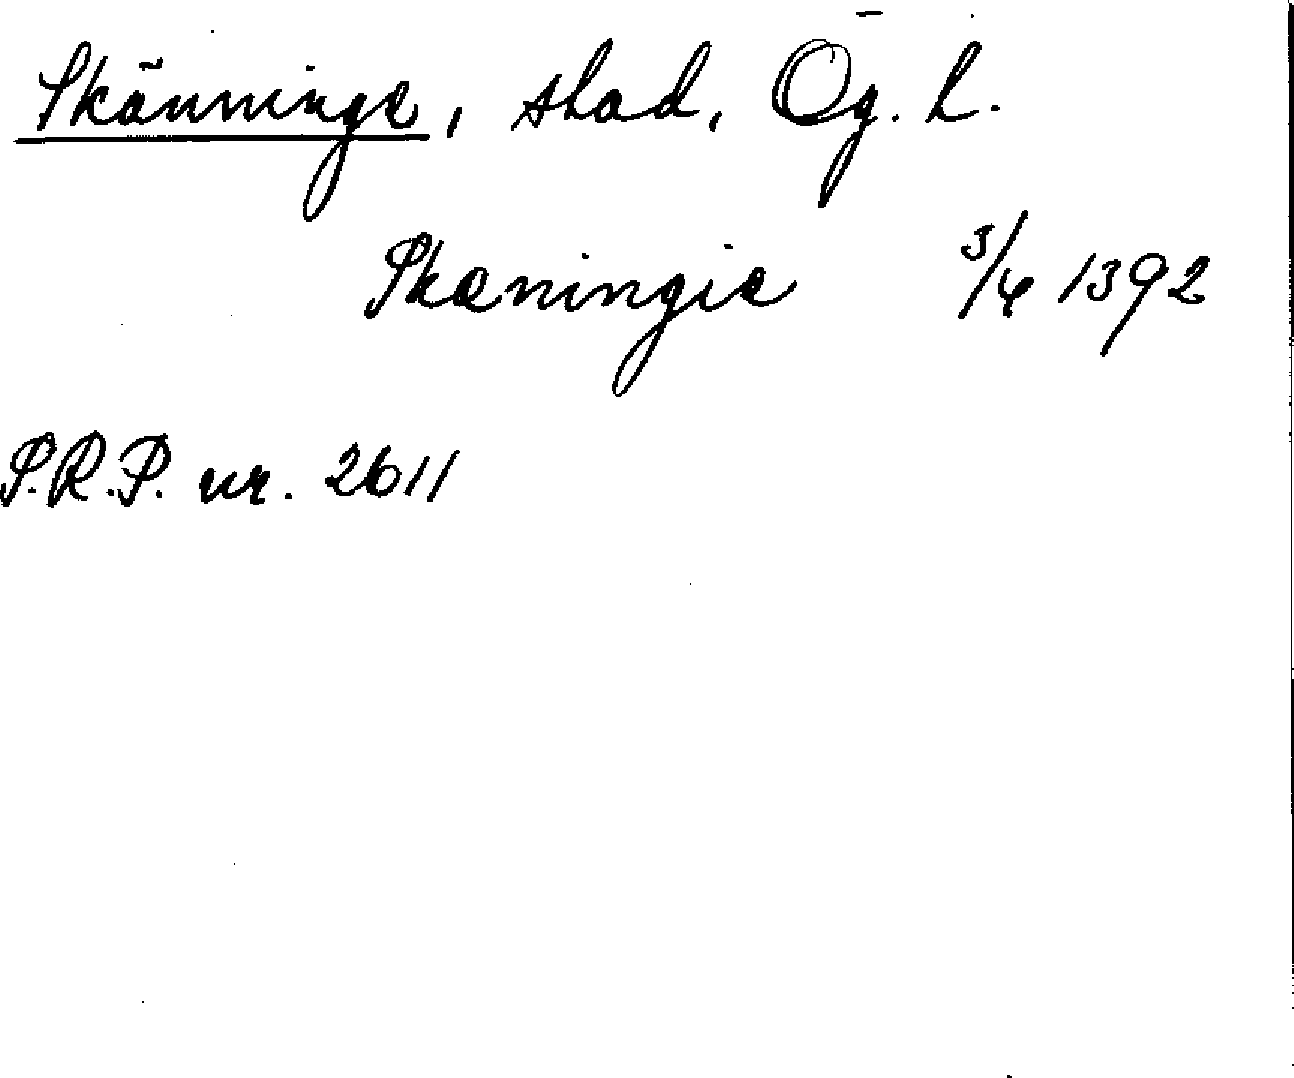 Skänninge, stad, Ög. L.
Skæningie 3/4 1392
S.R.P. nr. 2611